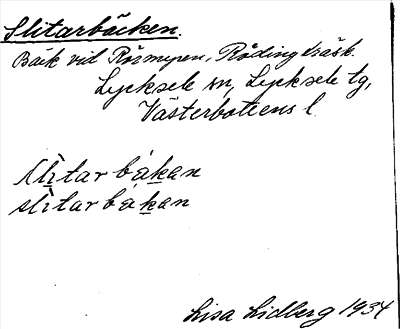 Slitarbäcken.
Bäck vid Rörmyren, Rödingträsk.
Lycksele sn, Lycksele tg,
Västerbottens l.
slìtar bákan
slìtar bákan
Lisa Lidberg 1934